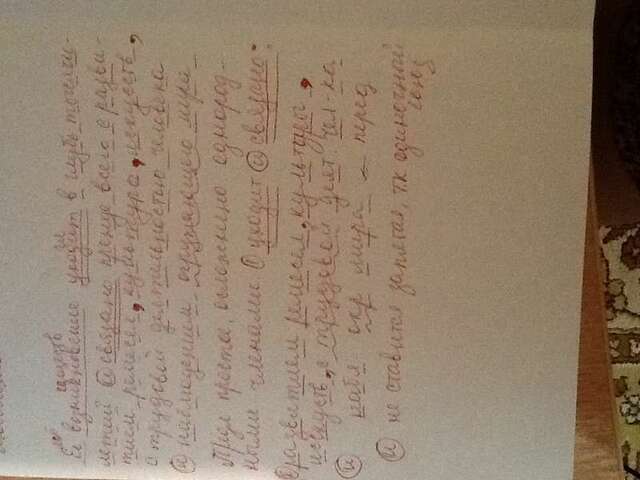 мес существ гл
Её возникновение уходит в глубь тысяче-
летий и связано прежде всего с разви-
тием ремесел, культуры, искусств,
с трудовой деятельностью человека
и наблюдением окружающего мира
Предл простое, осложнено однород-
ными членами: уходит и связано:
развитием ремесел, культуры,
искусств, с трудовой деят. чел-ка
и набл. окр мира – перед
и не ставится запятая, т.к одиночный
союз